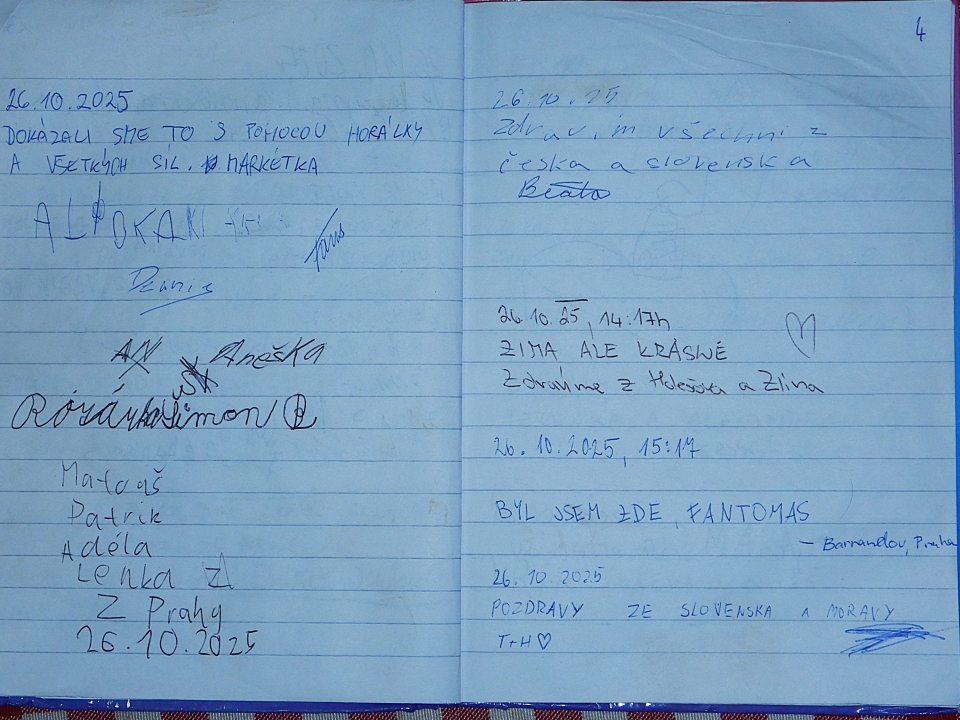 26.10.2025
DOKÁZALI SME TO S POMOCOU HORÁLKY
A VŠETKÝCH SÍL. MARKÉTKA
Dennis
Anežka
Rozárka Šimon
Matouš
Patrik
Adéla
Lenka
Z Prahy
26.10.2025
4
26.10.25
Zdravím všechni z
česka a slovenska
Beáta
26.10.25, 14:17h
ZIMA ALE KRÁSNĚ
Zdravíme z Holešova a Zlína
26.10.2025, 15:17
BYL JSEM ZDE, FANTOMAS
– Barrandov, Praha
26.10.2025
POZDRAVY ZE SLOVENSKA A MORAVY
T+H ♡